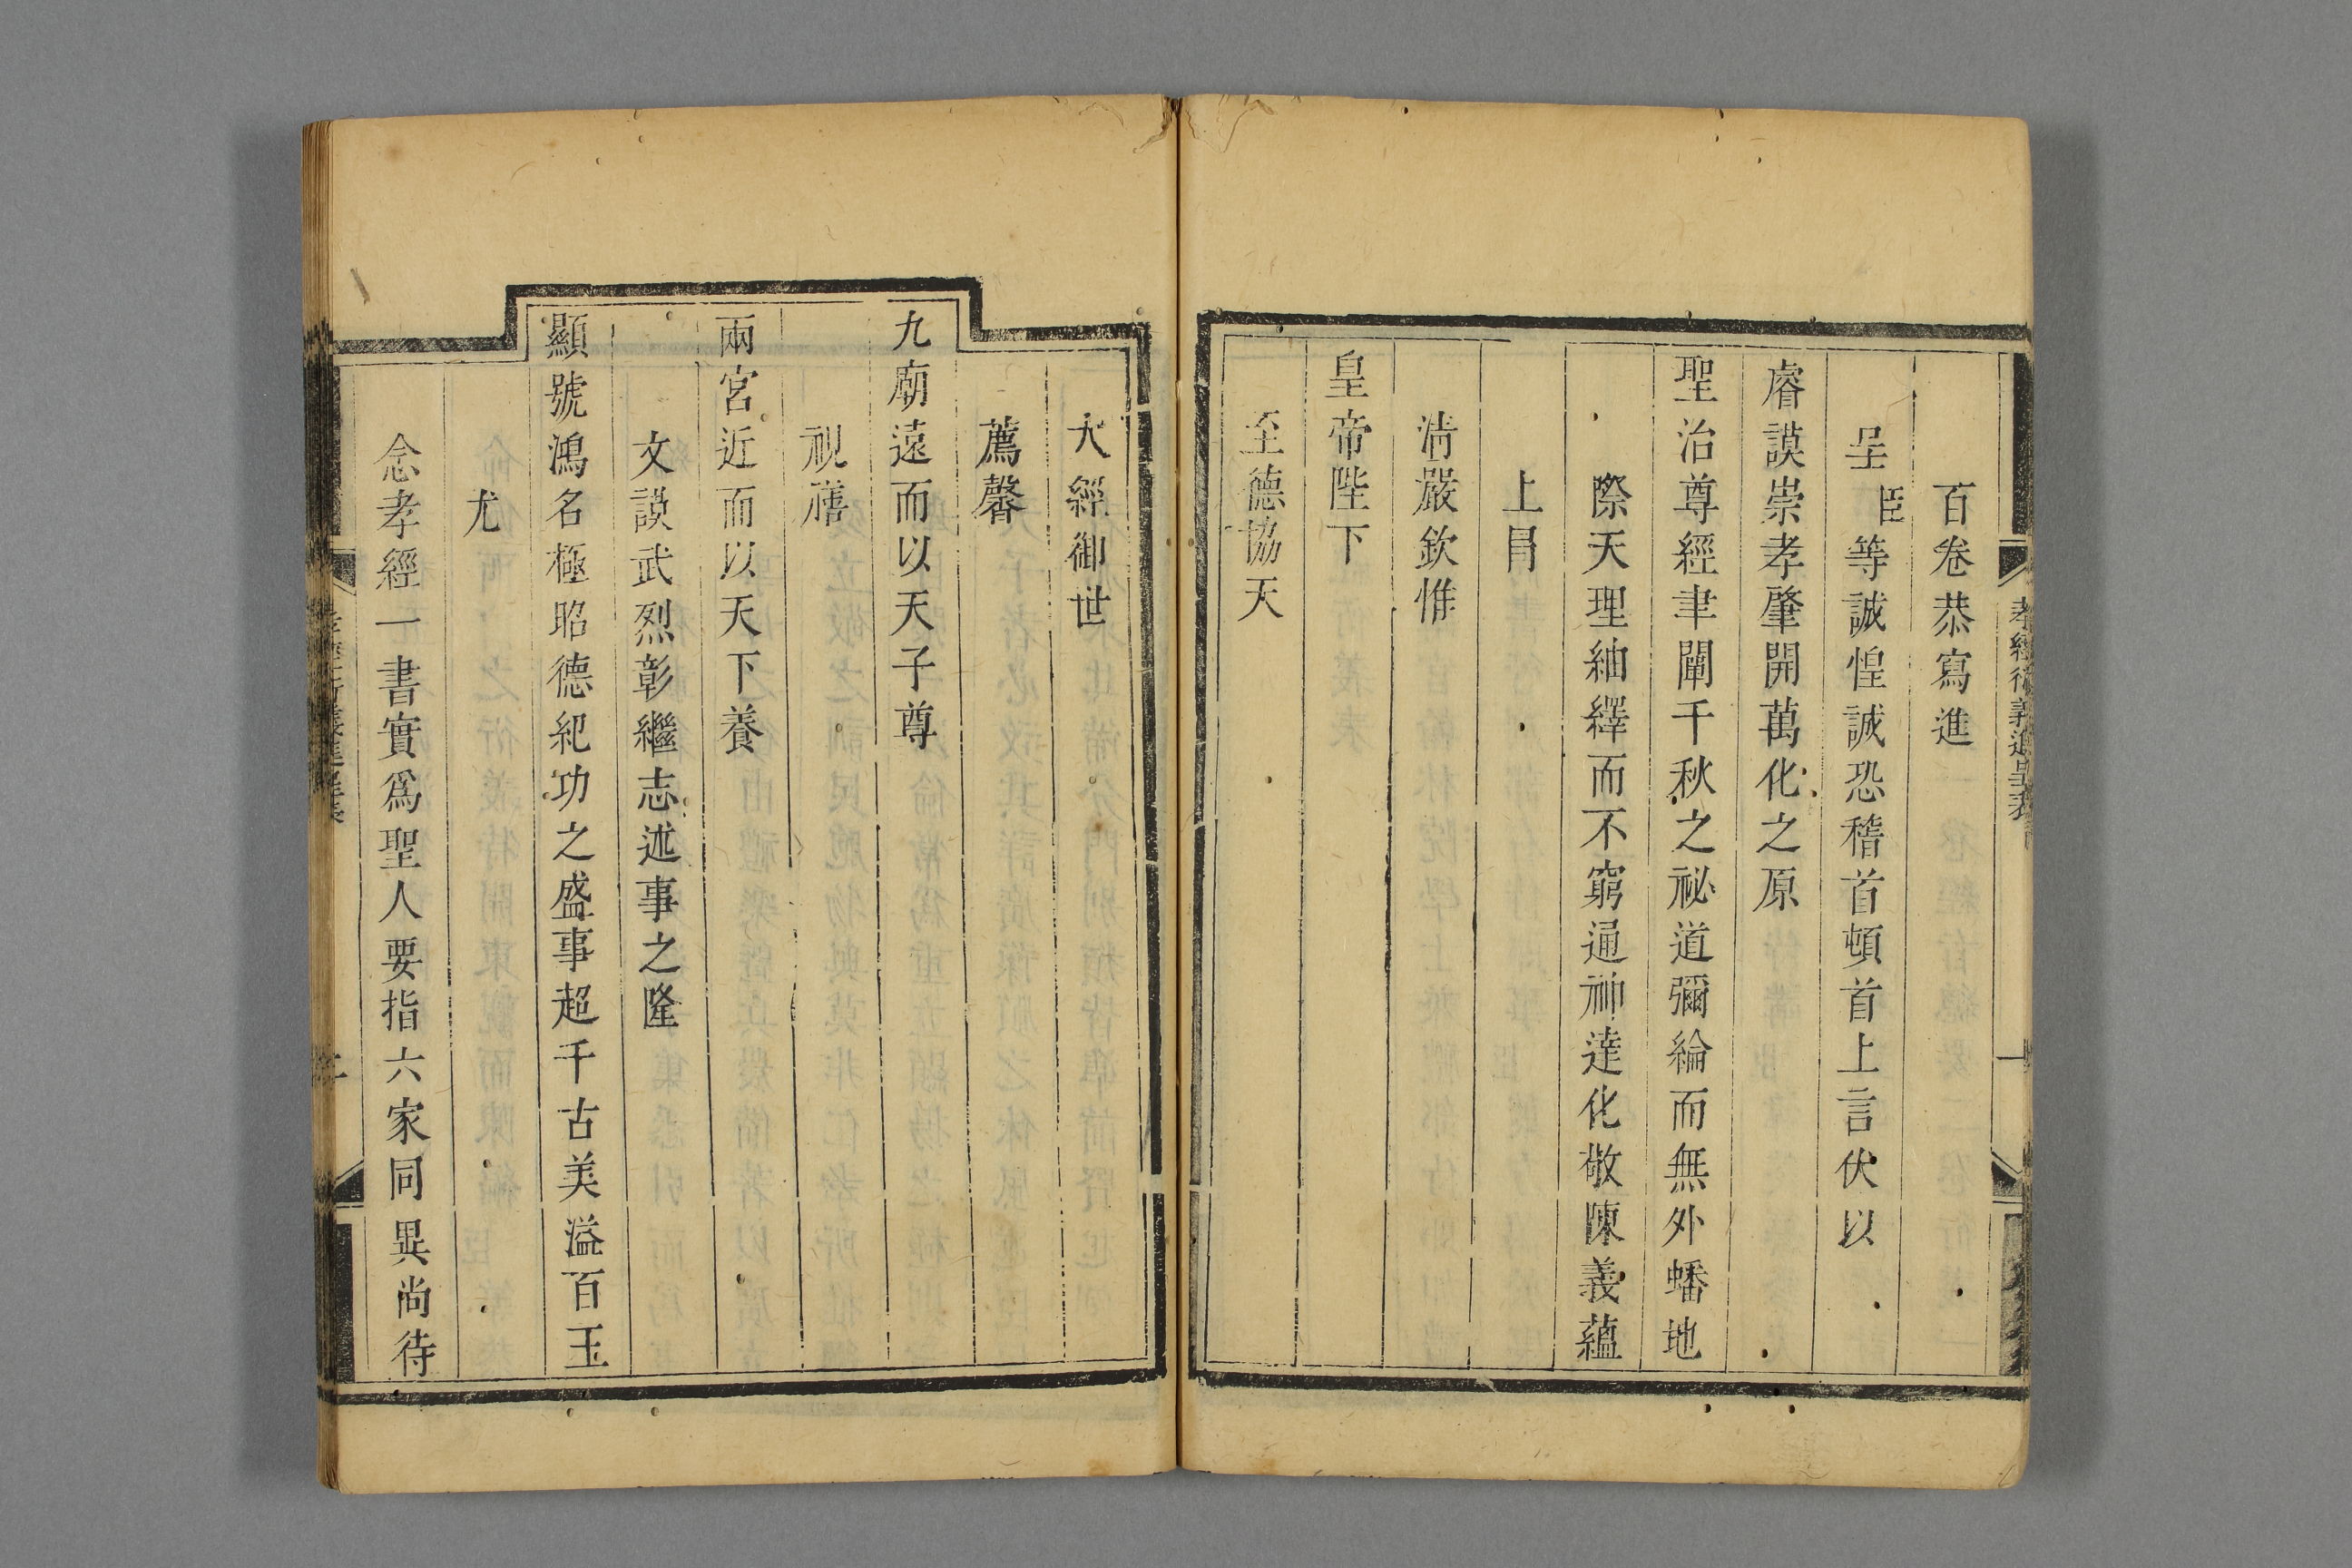 孝經衍義進呈表
一
百卷恭寫進
呈臣等誠惶誠恐稽首頓首上言伏以
睿謨崇孝肇開萬化之原
聖治尊經聿闡千秋之祕道彌綸而無外蟠地
際天理紬繹而不窮通神達化敬陳義蘊
上冒
淸嚴欽惟
皇帝陛下
至德協天
大經御世
薦馨
九廟遠而以天子尊
視膳
兩宮近而以天下養
文謨武烈彰繼志述事之隆
顯號鴻名極昭德紀功之盛事超千古美溢百王
尤
念孝經一書實爲聖人要指六家同異尚待